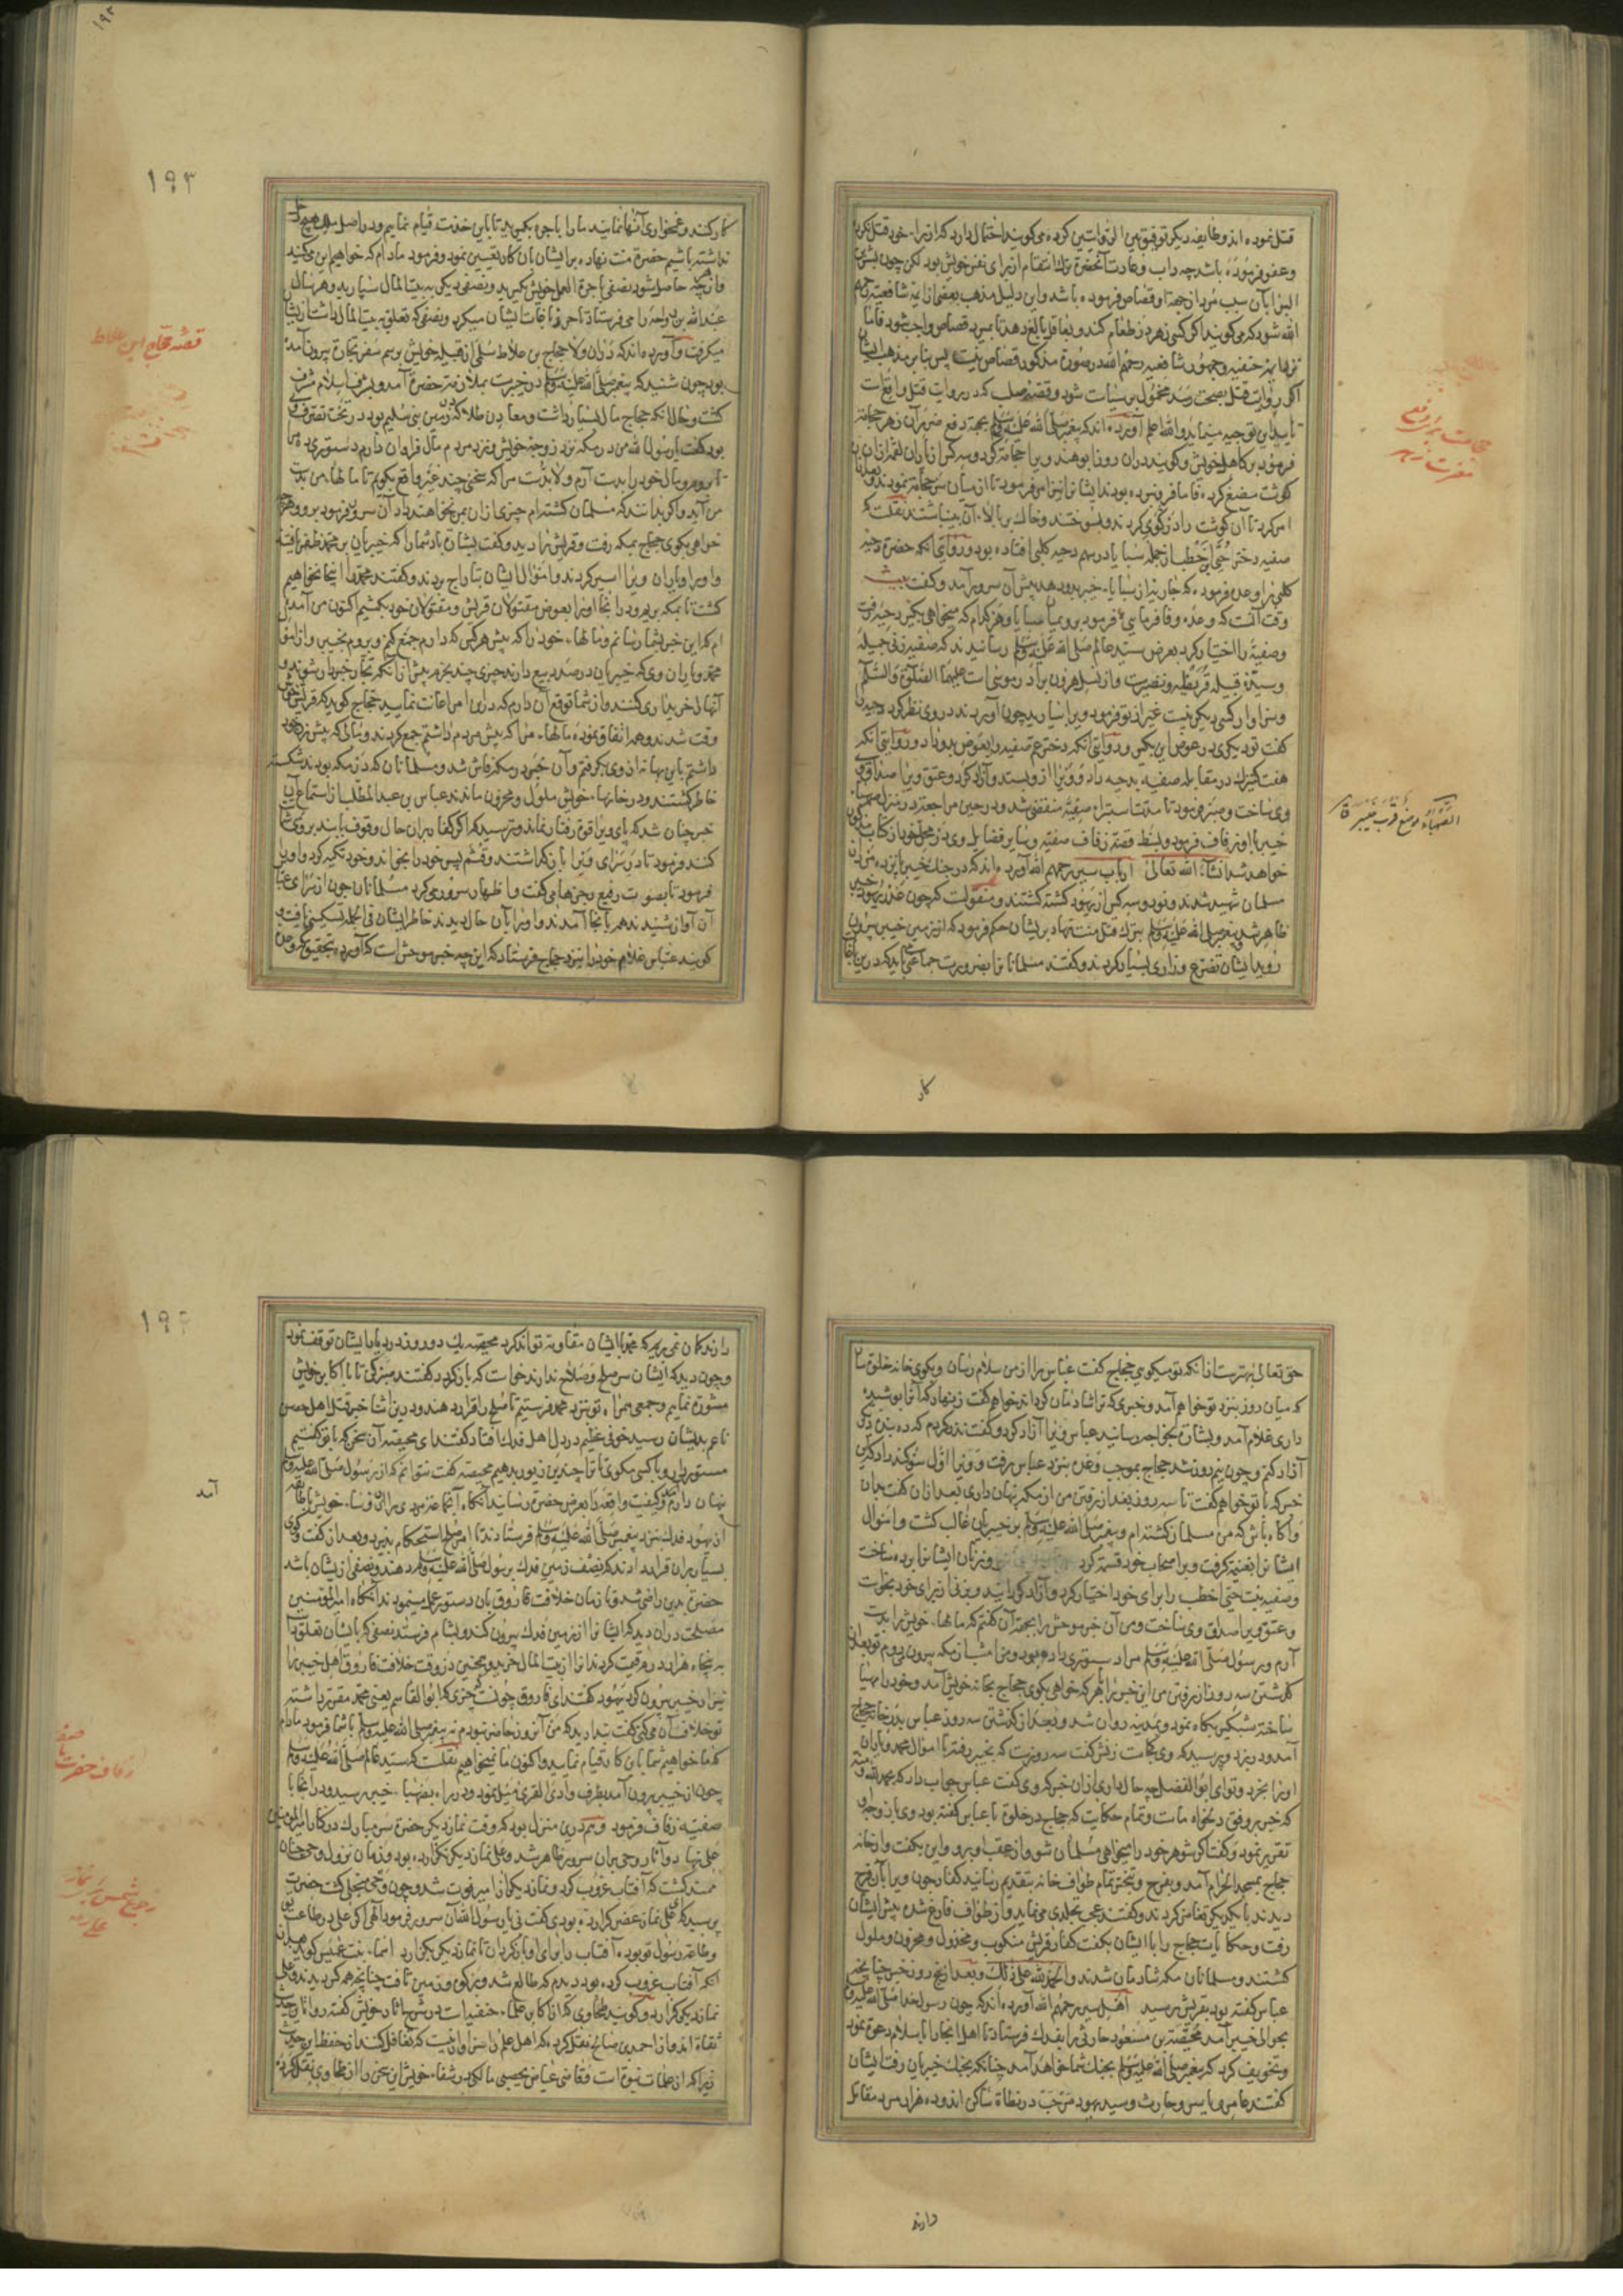 قتل نموده اند و طایفه دیگر توفیق بین الروایتین کرده می گویند احتمال دارد که از برای خود قتل نکرده
و عفو فرموده باشد چه داب و عادت آنحضرة ترك انتقام از برای نفس خویش بود لکن چون بشر بن
البرا بآن سبب مرد از جهة او قصاص فرموده باشد و این دلیل مذهب بعضی از ائمه شافعیه رحمهم
الله شود که می گویند اگر کسی زهر در طعام کند و بعاقل بالغ دهد تا بمیرد قصاص واجب شود فاما
نزد ائمه حنفیه و جمهور شافعیه رحمهم الله در صورة مذکور قصاص نیست پس بنابر مذهب ایشان
اگر روایت قتل بصحت رسد محمول بر سیاست شود و قصه صلب که در روایت قتل واقعست
تایید این توجیه مینماید والله اعلم آورده اند که پیغمبر صلی الله علیه وسلم بجهة دفع ضرر آن زهر حجامة
فرمود بر کاهل خویش و گویند دران روز ابو هند ویرا حجامة کرد و سه کس از یاران لقمه ازان
گوشت مضغ کرده فاما فرو نبرده بودند ایشانرا نیز امر فرمود تا از میان سر حجامة نمودند و
امر کرد تا آن گوشت را در گوی کردند و بسوختند و خاك بر بالاء آن بینباشتند نقلست که
صفیه دختر حیی بن اخطب از جمله سبایا در سهم دحیه کلبی افتاده بود و روایتی آنکه حضرة دحیه
کلبی را وعده فرموده که جاریه از سبایاء خیبر بدو دهد پیش آن سرور آمد و گفت
وقت آنست که وعده وفا فرمایی فرمود برو بمیان سبایا و هر کدام که میخواهی بگیر دحیه رفت
و صفیه را اختیار کرد بعرض سید عالم صلی الله علیه وسلم رسانیدند که صفیه زنی جمیله
و سیده قبیله قریظه و نضیرست و از نسل هرون برادر موسی است علیهما الصلوة والسلام
و سزاوار کسی دیگر نیست غیر از تو فرمود ویرا بیارید چون آوردند در وی نظر کرد دحیه را
گفت تو دیگری در عوض این بگیر و روایتی آنکه دختر عم صفیه را بعوض بدو داد و روایتی آنکه
هفت کنیزك در مقابله صفیه بدحیه داد و ویرا ازو بستد و آزاد کرد و عتق ویرا صداق
وی ساخت و صبر فرمود تا مدت استبراء صفیه منقضی شد و در حین مراجعت در منزل صهباء
خیبر با او زفاف فرمود و بسط قصه زفاف صفیه و سایر فضایل وی در محل خود از کتاب
خواهد شد انشاء الله تعالی ارباب سیر رحمهم الله آورده اند که در جنك خیبر پانزده مرد از
مسلمانان شهید شدند و نود و سه کس از یهود کشته گشتند و منقولست که چون غدر یهود خیبر
ظاهر شد پیغمبر صلی الله علیه وسلم بترك قتل منت نهاد بر ایشان حکم فرمود که از زمین خیبر بیرون
روید ایشان تضرع و زاری بسیار کردند و گفتند مسلمانانرا بضرورت جماعتی باید که درین باغها
حجامت برای دفع
مضرت زهر
الصهباء موضع قرب خیبر قا
کار
۱۹۳
۱۹۳
کار کنند و غمخواری آنها نمایند ما را باجره بگیرید تا باین خدمت قیام نماییم و در اصل ملك هیچ
نداشته باشیم حضرة منت نهاده بر ایشان بآن کار تعیین نمود و فرمود مادام که خواهیم این می کنید
و از آنچه حاصل شود نصفی باجرة العمل خویش بگیرید و نصفی دیگر به بیت المال سپارید و هر سال
عبد الله بن رواحه را می فرستاد تا حرز باغات ایشان میکرد و نصفی که تعلق به بیت المال داشت از ایشان
میگرفت و آورده اند که دران ولا حجاج بن علاط سلمی از قبیله خویش برسم سفر تجارة بیرون آمده
بود چون شنید که پیغمبر صلی الله علیه وسلم در خیبرست بملازمت حضرة آمد و بشرف اسلام مشرف
گشت و حال آنکه حجاج مال بسیار داشت و معادن طلا که در زمین بنی سلیم بود در تحت تصرف وی
بود گفت یا رسول الله من در مکه نزد زوجه خویش و نزد مردم مال فراوان دارم دستوری ده مرا
تا بروم و مال خود را بدست آرم و لابدست مرا که سخنی چند غیر واقع بگویم تا مالها من بدست
من آید و اگر بدانند که مسلمان گشته ام چیزی ازان بمن نخواهند داد آن سرور فرمود برو و هر چه
خواهی بگوی حجاج بمکه رفت و قریش را دید و گفت بشارة باد شما را که خیبریان بر محمد ظفر یافته
و او را و یاران ویرا اسیر کردند و اموال ایشان بتاراج بردند و گفتند محمد را اینجا نخواهیم
کشت تا بمکه بریم و در انجا او را بعوض مقتولان قریش و مقتولان خود بکشیم اکنون من آمده
ام که این خبر بشما رسانم و مالهاء خود را که پیش هر کس که دارم جمع کنم و بروم بخیبر و از اموال
محمد و یاران وی که خیبریان در صدد بیع دارند چیزی چند بخرم پیش ازانکه تجار خبردار شوند و
آنها را خریداری کنند و از شما توقع آن دارم که درین امر اعانت نمایید حجاج گوید که قریش خوش
وقت شدند و همه اتفاق نموده مالهاء مرا که پیش مردم داشتم جمع کردند و مالی که پیش زن خود
داشتم باین بهانه ازوی بگرفتم و آن خبر در مکه فاش شد و مسلمانان که در مکه بودند شکسته
خاطر گشتند و در خانهاء خویش ملول و محزون ماندند عباس بن عبد المطلب از استماع این
خبر چنان شد که پای ویرا قوة رفتار نماند و ترسید که اگر کفار بران حال وقوف یابند بروی شماتت
کنند فرمود تا در سرای ویرا باز گذاشتند و قثم پسر خود را بخواند و خود تکیه کرد و او را
فرمود تا بصوت رفیع رجزها می گفت و اظهار سرور می کرد مسلمانان چون از سرای عباس
آن آواز شنیدند همه بآنجا آمدند و او را بآن حال دیدند خاطر ایشان فی الجمله تسکینی یافت و
گویند عباس غلام خود را نزد حجاج فرستاد که این چه خبر موحش است که آورده بتحقیق که وعده
قصه حجاج ابن علاط
حق تعالی بهترست ازانکه تو میگویی حجاج گفت عباس را از من سلام رسان و بگوی خانه خلوة ساز
که میان روز نزد تو خواهم آمد و خبری که ترا شادمان گرداند خواهم گفت زینهار که آنرا پوشیده
داری غلام آمد و بشارة بخواجه رسانید عباس ویرا آزاد کرد و گفت نذر کردم که ده بنده دیگر
آزاد کنم و چون نیم روز شد حجاج بموجب وعده نزد عباس رفت و ویرا اول سوگند داد که این
خبر که با تو خواهم گفت تا سه روز بعد از رفتن من از مکه پنهان داری بعد ازان گفت بدان
و آگاه باش که من مسلمان گشته ام و پیغمبر صلی الله علیه وسلم بر خیبریان غالب گشت و اموال
ایشانرا بغنیمة گرفت و بر اصحاب خود قسمة کرد و زنان ایشانرا برده ساخت
و صفیه بنت حیی اخطب را برای خود اختیار کرد و آزاد گردانید و بزنی از برای خود بخواست
و عتق ویرا صداق وی ساخت و من آن خبر موحش را بجهة آن گفتم که مالهاء خویش را بدست
آرم و رسول صلی الله علیه وسلم مرا دستوری داده بود و من امشب از مکه بیرون می روم تو بعد از
گذشتن سه روز از رفتن من این خبر را بهر که خواهی بگوی حجاج بخانه خویش آمد و خود را مهیا
ساخته شبگیر بگاه نمود و بمدینه روان شد و بعد از گذشتن سه روز عباس بدر خانه حجاج
آمد و در بزد و پرسید که وی کجاست زنش گفت سه روزست که بخیبر رفته تا اموال محمد و یاران
او را بخرد و تو ای ابو الفضل چه حال داری ازان خبر که وی گفت عباس جواب داد که بحمد الله
که خبر بر وفق دلخواه ماست و تمام حکایت که حجاج در خلوة با عباس گفته بود وی با زوجه او
تقریر نمود و گفت اگر شوهر خود را میخواهی مسلمان شو و از عقب او برو و این بگفت و از خانه
حجاج بمسجد الحرام آمد و بفرح و تبختر تمام طواف خانه بتقدیم رسانید کفار چون ویرا بآن فرح
دیدند با یکدیگر تغامز کردند و گفتند عجب تجلدی می نماید و از طواف فارغ شده پیش ایشان
رفت و حکایات حجاج را با ایشان بگفت کفار قریش منکوب و مخذول و محزون و ملول
گشتند و مسلمانان مکه شادمان شدند والحمد لله علی ذلك و بعد از پنج روز خبر چنانچه
عباس گفته بود بقریش رسید اهل سیر رحمهم الله آورده اند که چون رسول خدا صلی الله علیه وسلم
بحوالی خیبر آمد محیصه بن مسعود حارثی را بفدك فرستاد تا اهل انجا را باسلام دعوة نمود
و تخویف کرد که پیغمبر صلی الله علیه وسلم بجنك شما خواهد آمد چنانکه بجنك خیبریان رفت ایشان
گفتند عامر و یاسر و حارث و سید یهود مرحب در نطاة ساکن اند و ده هزار مرد مقاتل
دارند
دارند گمان نمی بریم که محمد با ایشان مقاومة تواند کرد محیصه یك دو روز در دیار ایشان توقف نمود
و چون دید که ایشان سر صلح و صلاح ندارند خواست که باز گردد گفتند صبر کن تا ما با اکابر خویش
مشورة نماییم و جمعی همراه تو نزد محمد فرستیم تا صلح را قرار دهند و درین اثنا خبر قتل اهل حصن
ناعم بدیشان رسید خوفی عظیم در دل اهل فدك افتاد گفتند ای محیصه آن سخن که با تو گفتیم
مستور دار و با کسی مگوی تا ترا چندین زیور بدهیم محیصه گفت نتوانم که از رسول صلی الله علیه وسلم
پنهان دارم و کیفیت واقعه را بعرض حضرة رسانید آنگاه
از یهود فدك نزد پیغمبر صلی الله علیه وسلم فرستادند تا امر صلح استحکام پذیرد و بعد از گفت و گوی
بسیار بران قرار دادند که نصف زمین فدك رسول صلی الله علیه وسلم را دهند و نصفی از ایشان باشد
حضرة بدین راضی شد و تا زمان خلافت فاروق بآن دستور عمل مینمودند آنگاه امیر المؤمنین
مصلحت دران دید که ایشانرا از زمین فدك بیرون کند و بشام فرستد نصفی که بایشان تعلق داشت
به پنجاه هزار درم قیمت کردند آنرا از بیت المال خرید و همچنین در وقت خلافت فاروق اهل خیبر را
نیز از خیبر بیرون کرد یهود گفتند ای فاروق چونست که چیزی که ابو القاسم یعنی محمد مقرر داشته
تو خلاف آن می کنی گفت پندارید که من آنروز حاضر نبودم نه پیغمبر صلی الله علیه وسلم با شما فرمود مادام
که ما خواهیم شما باین کار قیام نمایید و اکنون ما نمیخواهیم نقلست که سید عالم صلی الله علیه وسلم
چون از خیبر بیرون آمد بطرف وادی القری میل نمود و در راه بصهباء خیبر رسید و در انجا با
صفیه زفاف فرمود و هم درین منزل بود که وقت نماز دیگر حضرة سر مبارك در کنار امیر المؤمنین
علی نهاد و آثار وحی بران سرور ظاهر شد و علی نماز دیگر نگزارده بود و زمان نزول وحی چنان
ممتد گشت که آفتاب غروب کرد و نماز دیگر از امیر فوت شد و چون وحی منجلی گشت حضرت
پرسید که ای علی نماز عصر گزارده بودی گفت نی یا رسول الله آن سرور فرمود الهی اگر علی در طاعت
و طاعة رسول تو بوده آفتاب را برای او باز گردان تا نماز دیگر بگزارد اسماء بنت عمیس گوید
که آفتاب غروب کرده بود دیدم که طالع شد و بر کوه و زمین تافت چنانچه همه کس دیدند و علی
نماز دیگر گزارد و گویند طحاوی که از اکابر علماء حنفیه است در شرح آثار خویش گفته رواة این حدیث
ثقاة اند و از احمد بن صالح نقل کرده که اهل علم را سزاوار نیست که تغافل کنند از حفظ این حدیث
زیرا که از علامات نبوة است و قاضی عیاض یحصبی مالکی در شفاء خویش این سخن را از طحاوی نقل کرده
آمد
زفاف حضرت
با صفیه
رجوع شمس برای نماز
علی رض